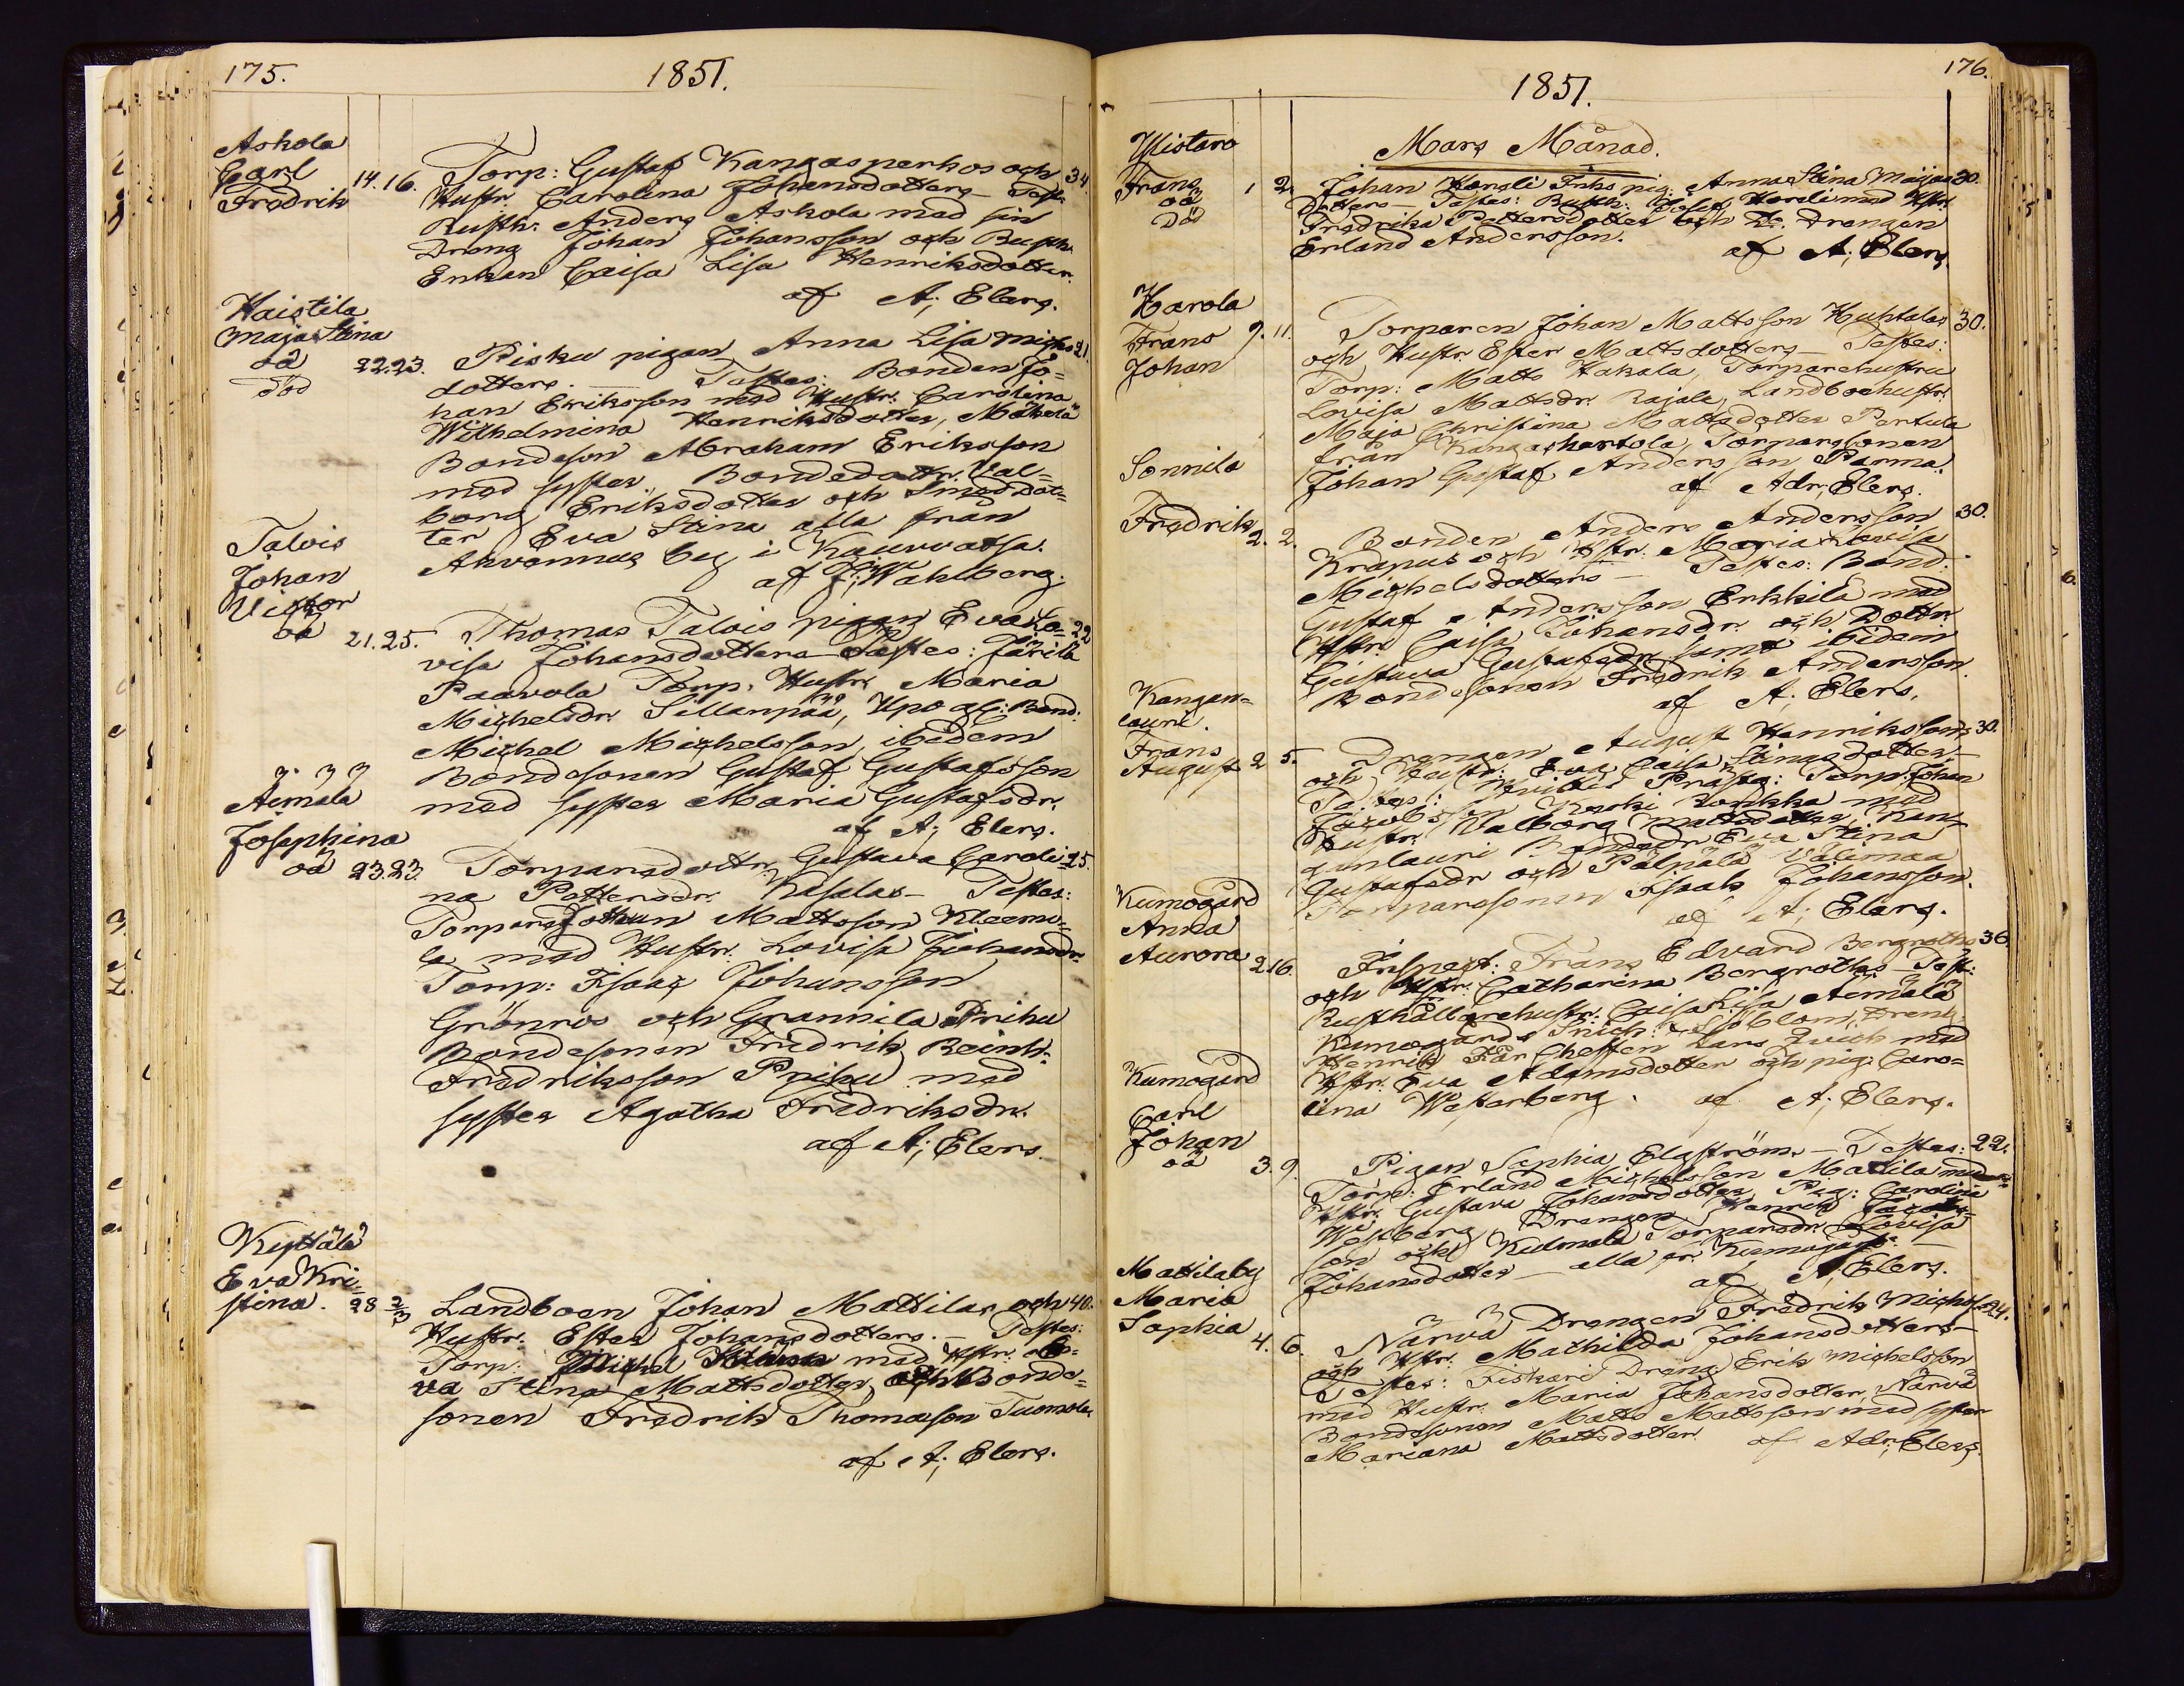 175.
1851.
Askola
Carl
Fredrik
14. 16. Torp: Gustaf Kangasperkos och 34.
Hustr. Carolina Johansdotters - Test:
Rusth: Anders Askola med sin
Dräng Johan Johansson och Rusth:
Enkan Caisa Lisa Henriksdotter.
af A; Elers.
Haistila
Maja Stina
oä
Död
22. 23. Pisku pigan Anna Lisa Michels 21.
dotters. — Testes: Bonden Jo=
han Eriksson med Hustr. Carolina
Wilhelmina Henriksdotter, Mäkelä
Bondeson Abraham Eriksson
med syster, Bondedottr. Val=
borg Eriksdotter och dot=
ter Eva Stina alla från
Ahvennus by i Kauvatsa.
af F; Wahlberg.
Talois
Johan
Victor
oä
21. 25. Thomas Talois pigan Eva Lo= 22
visa Johansdotters - Testes: Järilä
Paavola Torp. Hustr. Maria
Michelsdr. Sillanpää, Bond:
Michel Michelsson, ibidem
Bondesonen Gustaf Gustafsson
med syster Maria Gustafsdr.
af A; Elers.
Aimälä
Josephina
oä
23. 23. Torparedottr. Gustava Caroli= 25.
na Pettersdr. — Testes:
Torparen Johan Mattsson Kleeme=
la med Hustr. Lovisa Johansdr.
Torp: Isaac Johansson
Grönros och Grannila Prihu
Bondesonen Fredrik
Fredriksson Prihu med
syster Agatha Fredriksdr.
af A; Elers.
Kyttälä
Eva Kri=
stina.
28 2/3 Landboen Johan Mattilas och 40.
Hustr. Ester Johansdotters. — Testes:
Torp: Michel med Hstr. E=
va Stina Mattsdotter, och Bonde=
sonen Fredrik Thomasson Tuomola
af A; Elers.
176.
1851.
Mars Månad.
Wistaro
Frans
oä
Död
1 2. Johan Hareli Inhs pig: Anna Stina Maijas 30.
Dotters — Testes: Rusth: Josef Hareli med Hstr.
Fredrika Pettersdotter och Do. Drängen
Erland Andersson.
af A; Elers.
Harola
Frans
Johan
9. 11. Torparen Johan Mattsson Huhtalas 30.
och Hustr. Ester Mattsdotters — Testes:
Torp: Matts Hakala, Torparehustru
Lovisa Mattsdr. Rajala, Landboehustr.
Maja Christina Mattsdotter Pertula
från Kangashartola, Torparesonen
Johan Gustaf Andersson Parma.
af Adr; Elers.
Sonnila
Fredrik
2. 2. Bonden Anders Andersson 30.
Krapus och Hstr. Maria Lovisa
Michelsdotters — Testes: Bond:
Gustaf Andersson Erkkilä med
Hstr. Caisa Johansdr. och Dottr.
Gustava Gustafsdr. samt ibidem
Bondesonen Fredrik Andersson.
af A; Elers.
Kangan=
lauri.
Frans
August
2 5. Drängen August Henrikssons 30.
och Hustr. Eva Caisa Stinasdotter —
Testes: Torp. Johan
Jacobsson med
Hustr. Valborg Mattsdotter, Kan=
ganlauri Bondedr. Eva Stina
Gustafsdr. och Pälpälä Välimaa
Torparesonen Isaak Johansson.
af A; Elers.
Kumogård
Anna
Aurora
2 16. Inspect: Frans Edvard Bergroths 36.
och Hstr. Catharina Bergroths — Test:
Rusthållarehustr. Caisa Lisa Aimälä
Kumogårds Sjöblom, Dräng.
Henrik Lars med
Hstr. Eva Adamsdotter och pig: Caro=
lina Westerberg. af A; Elers.
Kumogård
Carl
Johan
oä
3. 9. Pigan Sophia Elgström. — Testes: 22.
Torp: Erland Michelsson Mattila med
Hstr. Gustava Johansdotter, Pig: Carolina
Westberg, Drängen Henrik Jacobs=
son och Kulmala Torparedr. Lovisa
Johansdotter — alla fr. Kumogård.
af A; Elers.
Mattila by
Maria
Sophia
4. 6. Närvä Drängen Fredrik Michels 24.
och Hstr. Mathilda Johansdotters —
Testes: Fiskari Dräng Erik Michelsson
med Hustr. Maria Johansdotter, Närvä
Bondesonen Matts Mattsson med syster
Mariana Mattsdotter. af Adr; Elers.